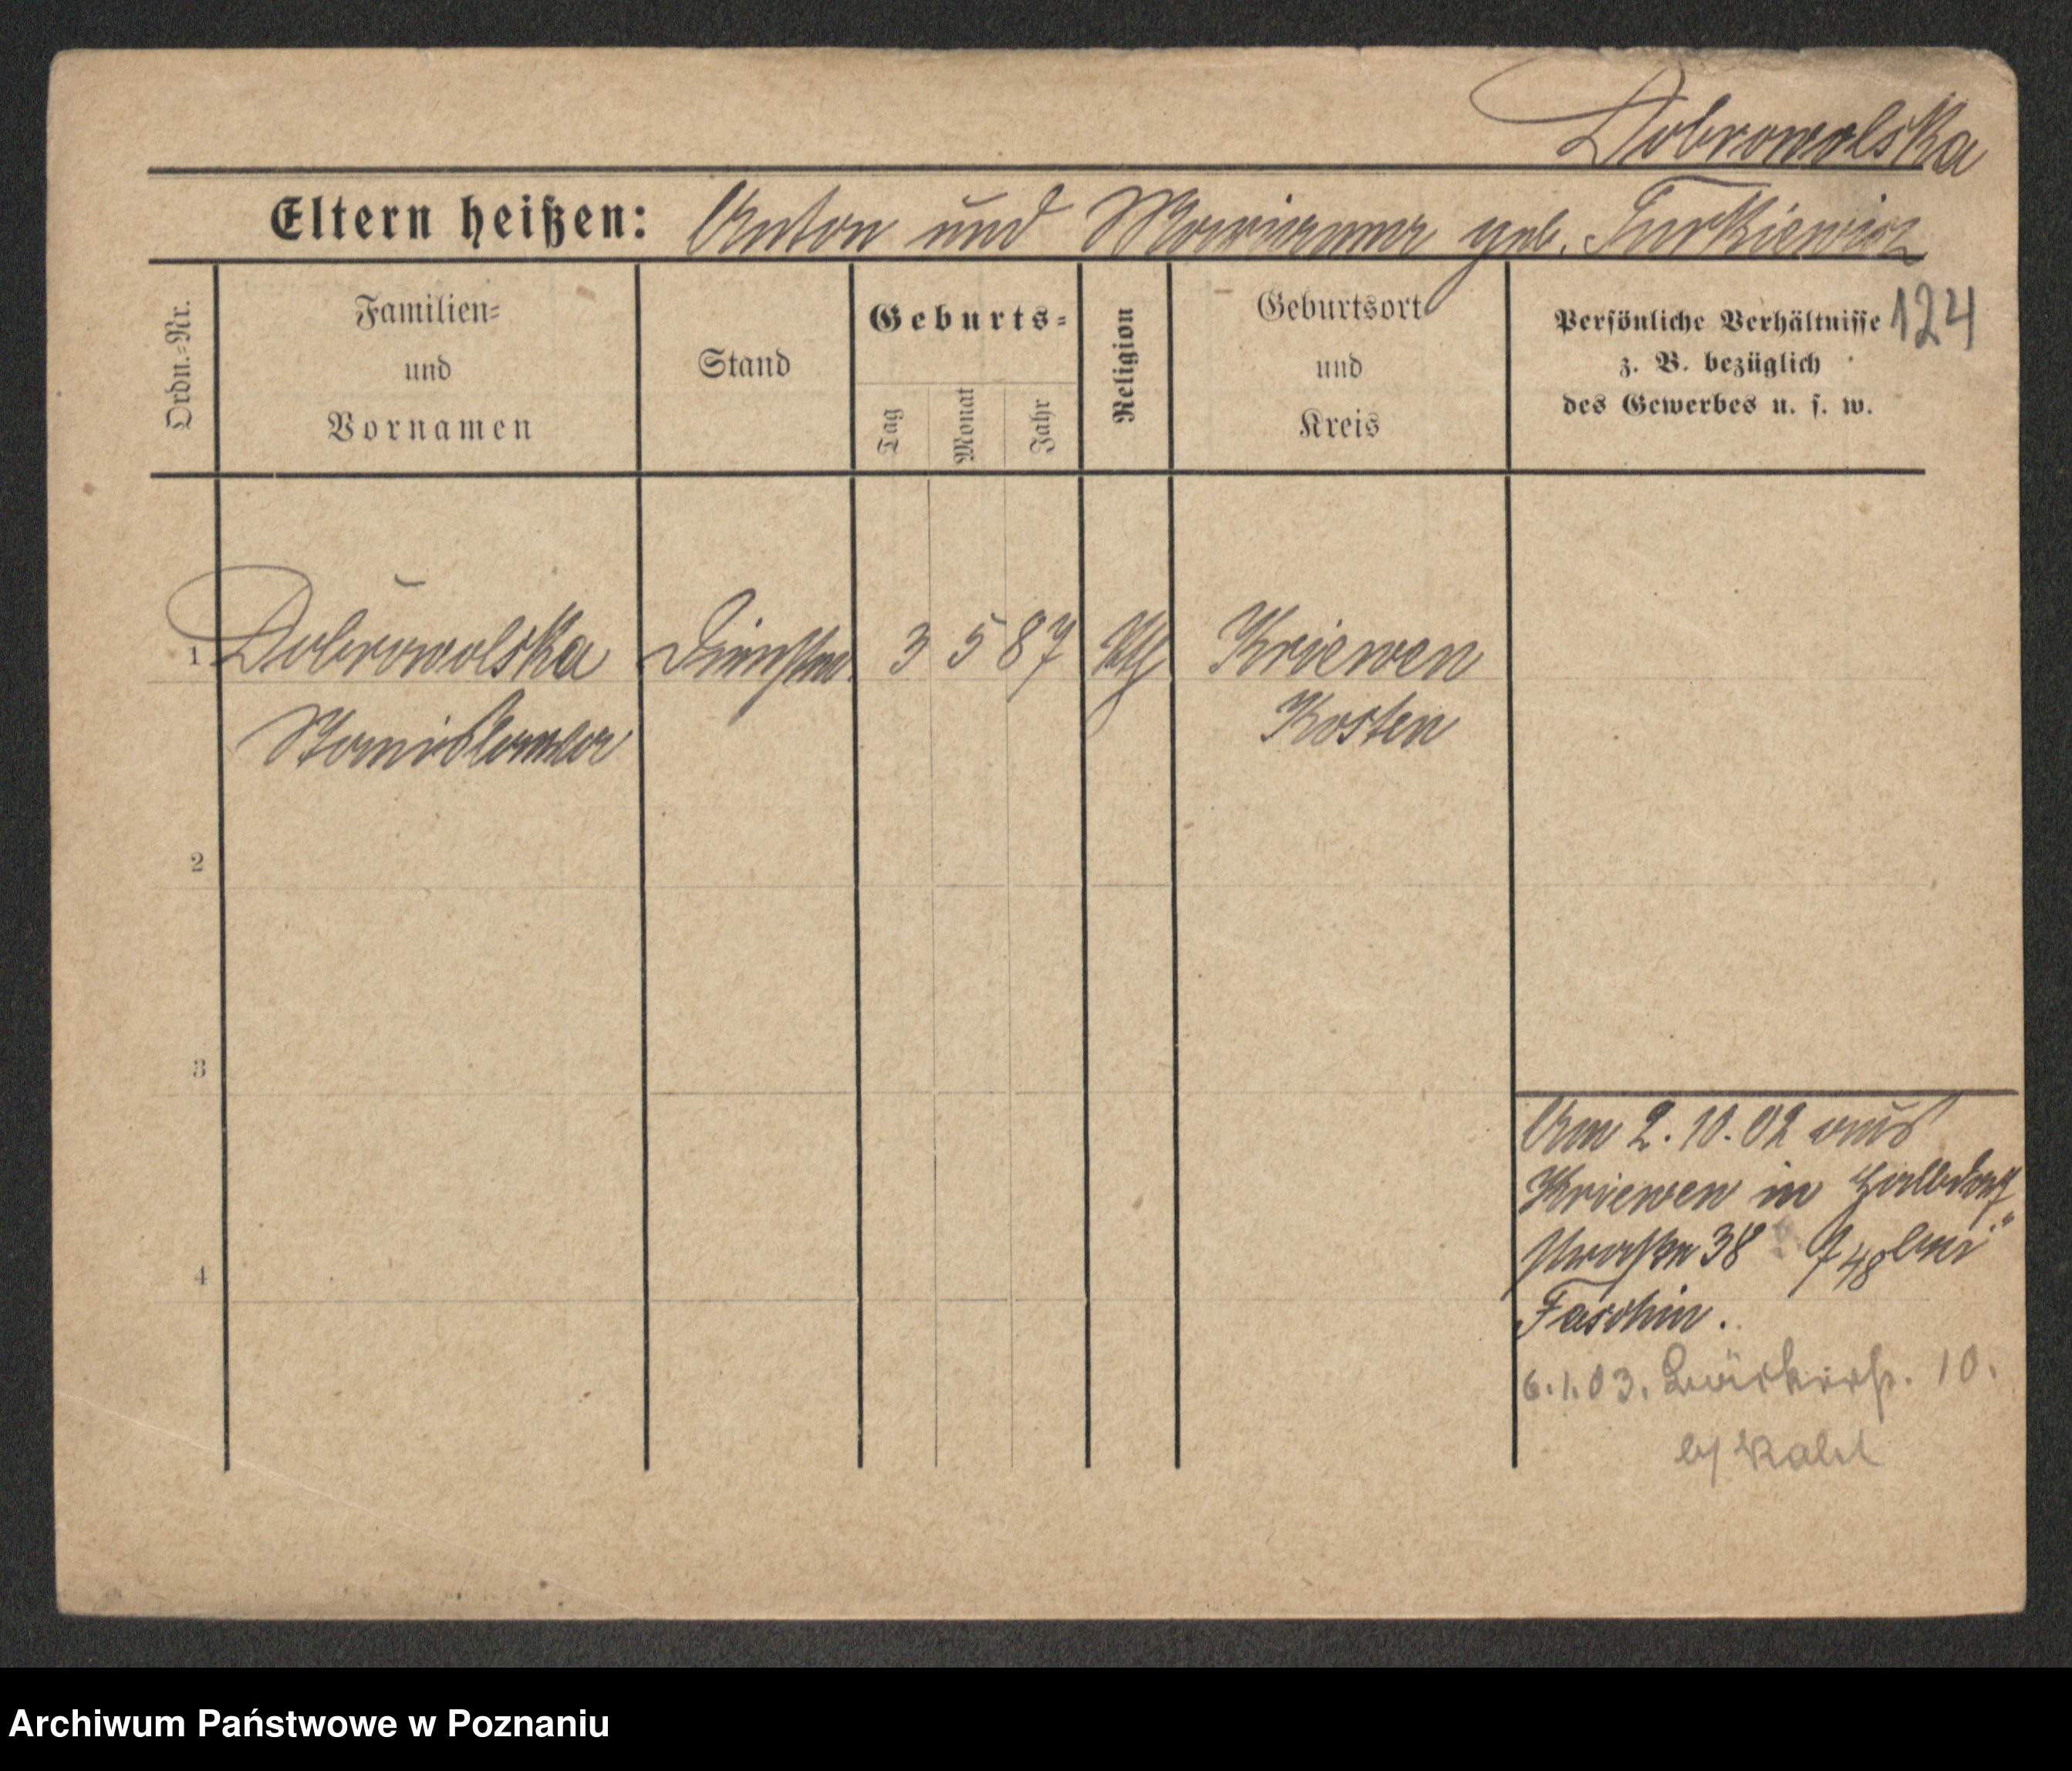 Dobrowolska
Eltern heißen: Anton und Marianna geb. Turkiewicz
124
Ordn.-Nr.
Familien-
und
Vornamen
Stand
Geburts-
Tag
Monat
Jahr
Religion
Geburtsort
und
Kreis
Persönliche Verhältnisse
z. B. bezüglich
des Gewerbes u. s. w.
1 Dobrowolska Dienstm. 3 5 87 kth Kriewen
Stanislawa Kosten
2
3
4
Am 2.10.02 aus
Kriewen in Halbdorf
straße 38 bei
Faschin.
6.1.03. 10.
b/
Archiwum Państwowe w Poznaniu